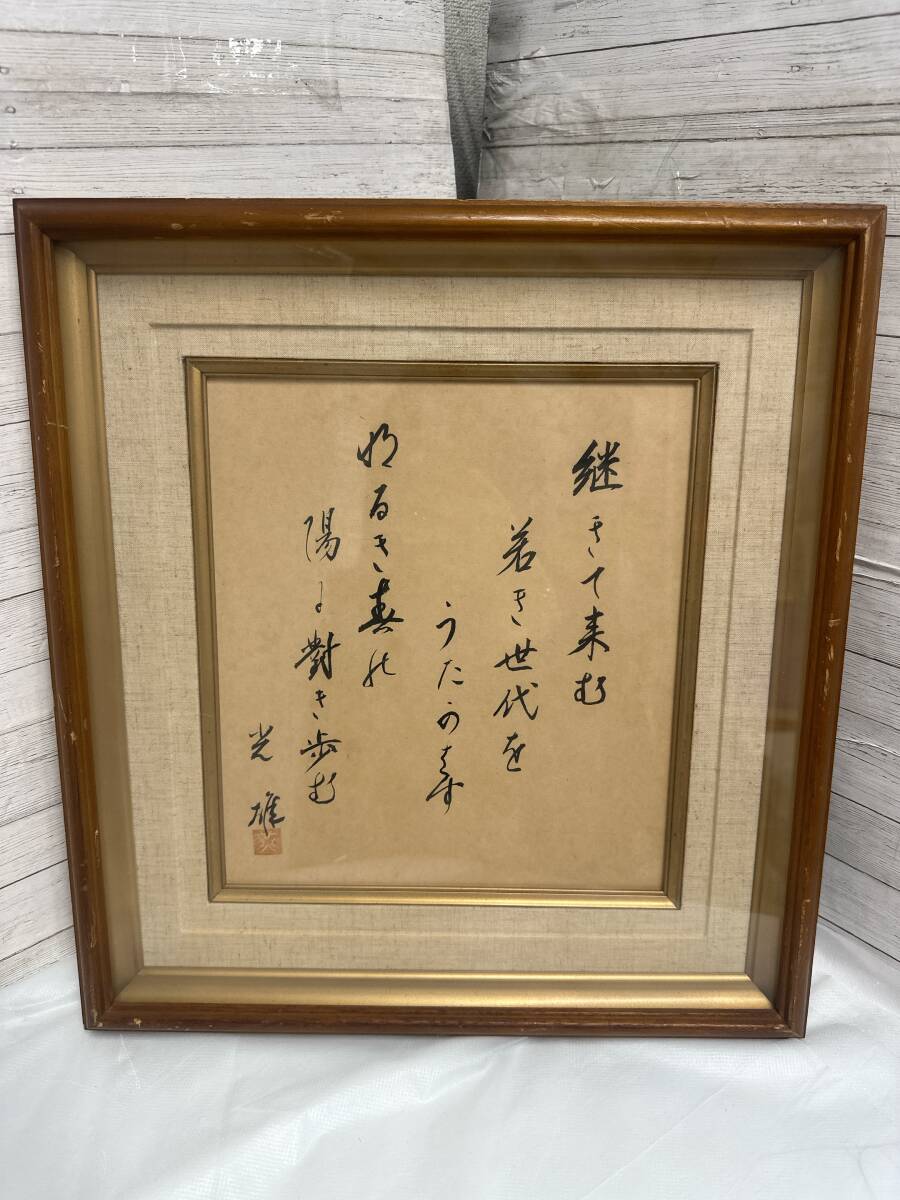 継ぎて来む
若き世代を
うたがはず
明るき春の
陽に對き歩む
光雄